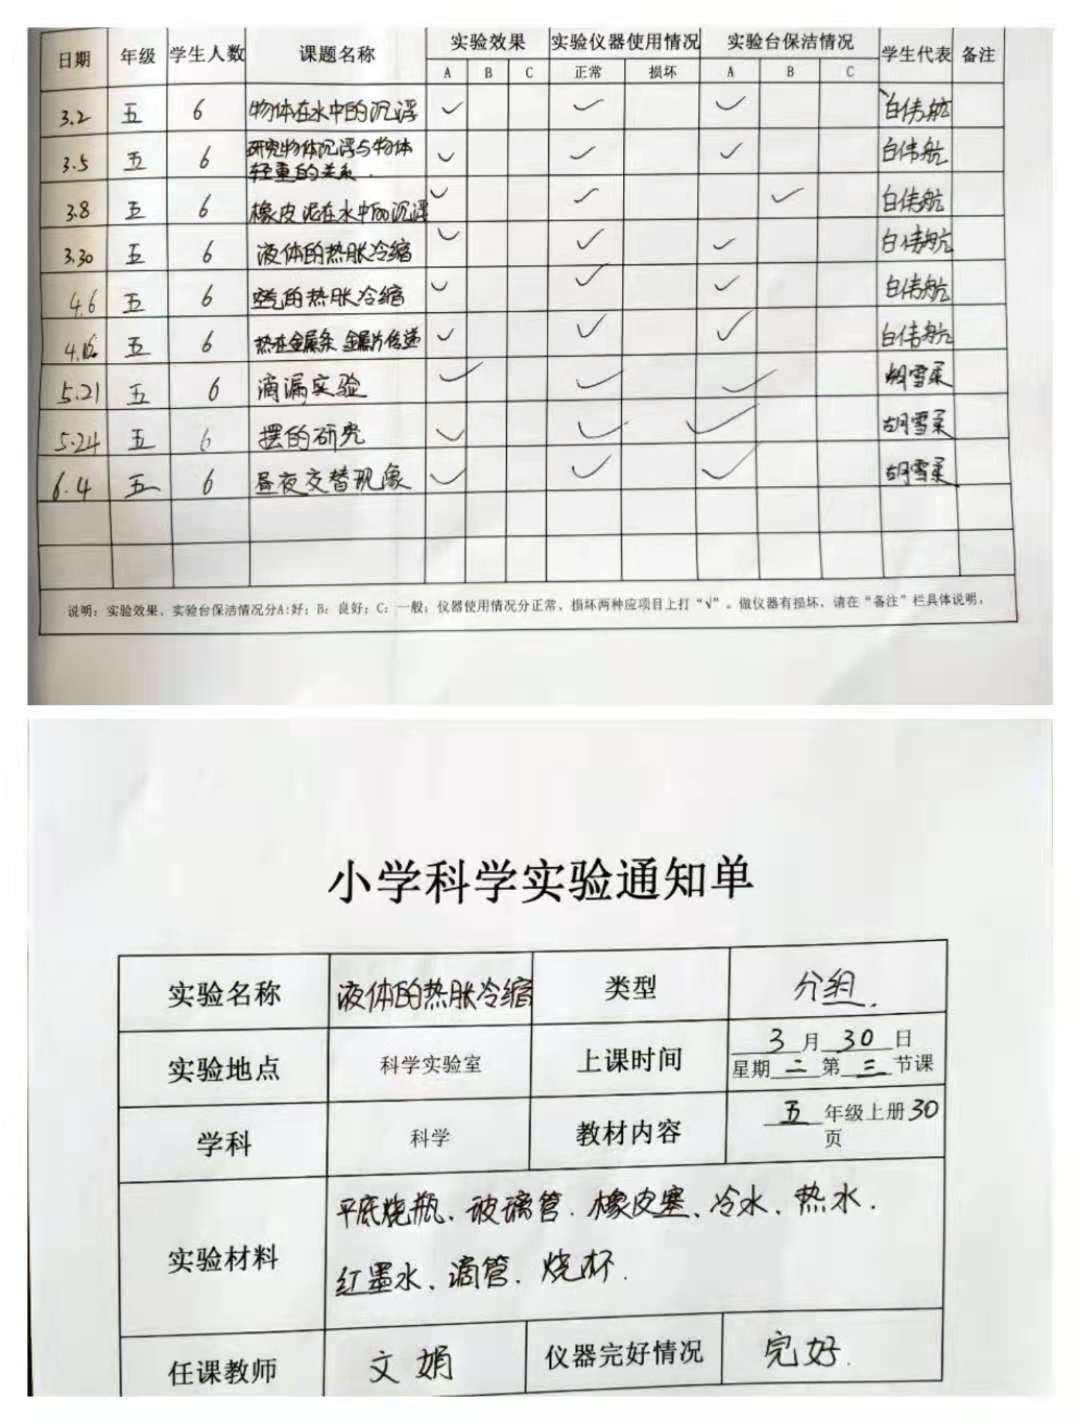 日期 年级 学生人数 课题名称 实验效果 实验仪器使用情况 实验台保洁情况 学生代表 备注
A B C 正常 损坏 A B C
3.2 五 6 物体在水中的沉浮 ✓ ✓ ✓ 白伟航
3.5 五 6 研究物体沉浮与物体
轻重的关系. ✓ ✓ ✓ 白伟航
3.8 五 6 橡皮泥在水中的沉浮 ✓ ✓ ✓ 白伟航
3.30 五 6 液体的热胀冷缩 ✓ ✓ ✓ 白伟航
4.6 五 6 空气的热胀冷缩 ✓ ✓ ✓ 白伟航
五 6 热在金属条 金属片传递 ✓ ✓ ✓ 白伟航
5.21 五 6 滴漏实验 ✓ ✓ ✓ 胡雪柔
5.24 五 6 摆的研究 ✓ ✓ ✓ 胡雪柔
6.4 五 6 昼夜交替现象 ✓ ✓ ✓ 胡雪柔
说明：实验效果、实验台保洁情况分A:好；B：良好；C：一般；仪器使用情况分正常、损坏两种应项目上打“√”。做仪器有损坏，请在“备注”栏具体说明。
小学科学实验通知单
实验名称 液体的热胀冷缩 类型 分组.
实验地点 科学实验室 上课时间 3月30日
星期二第三节课
学科 科学 教材内容 五年级上册30
页
实验材料 平底烧瓶、玻璃管.橡皮塞、冷水、热水.
红墨水、滴管.烧杯.
任课教师 文娟 仪器完好情况 完好.